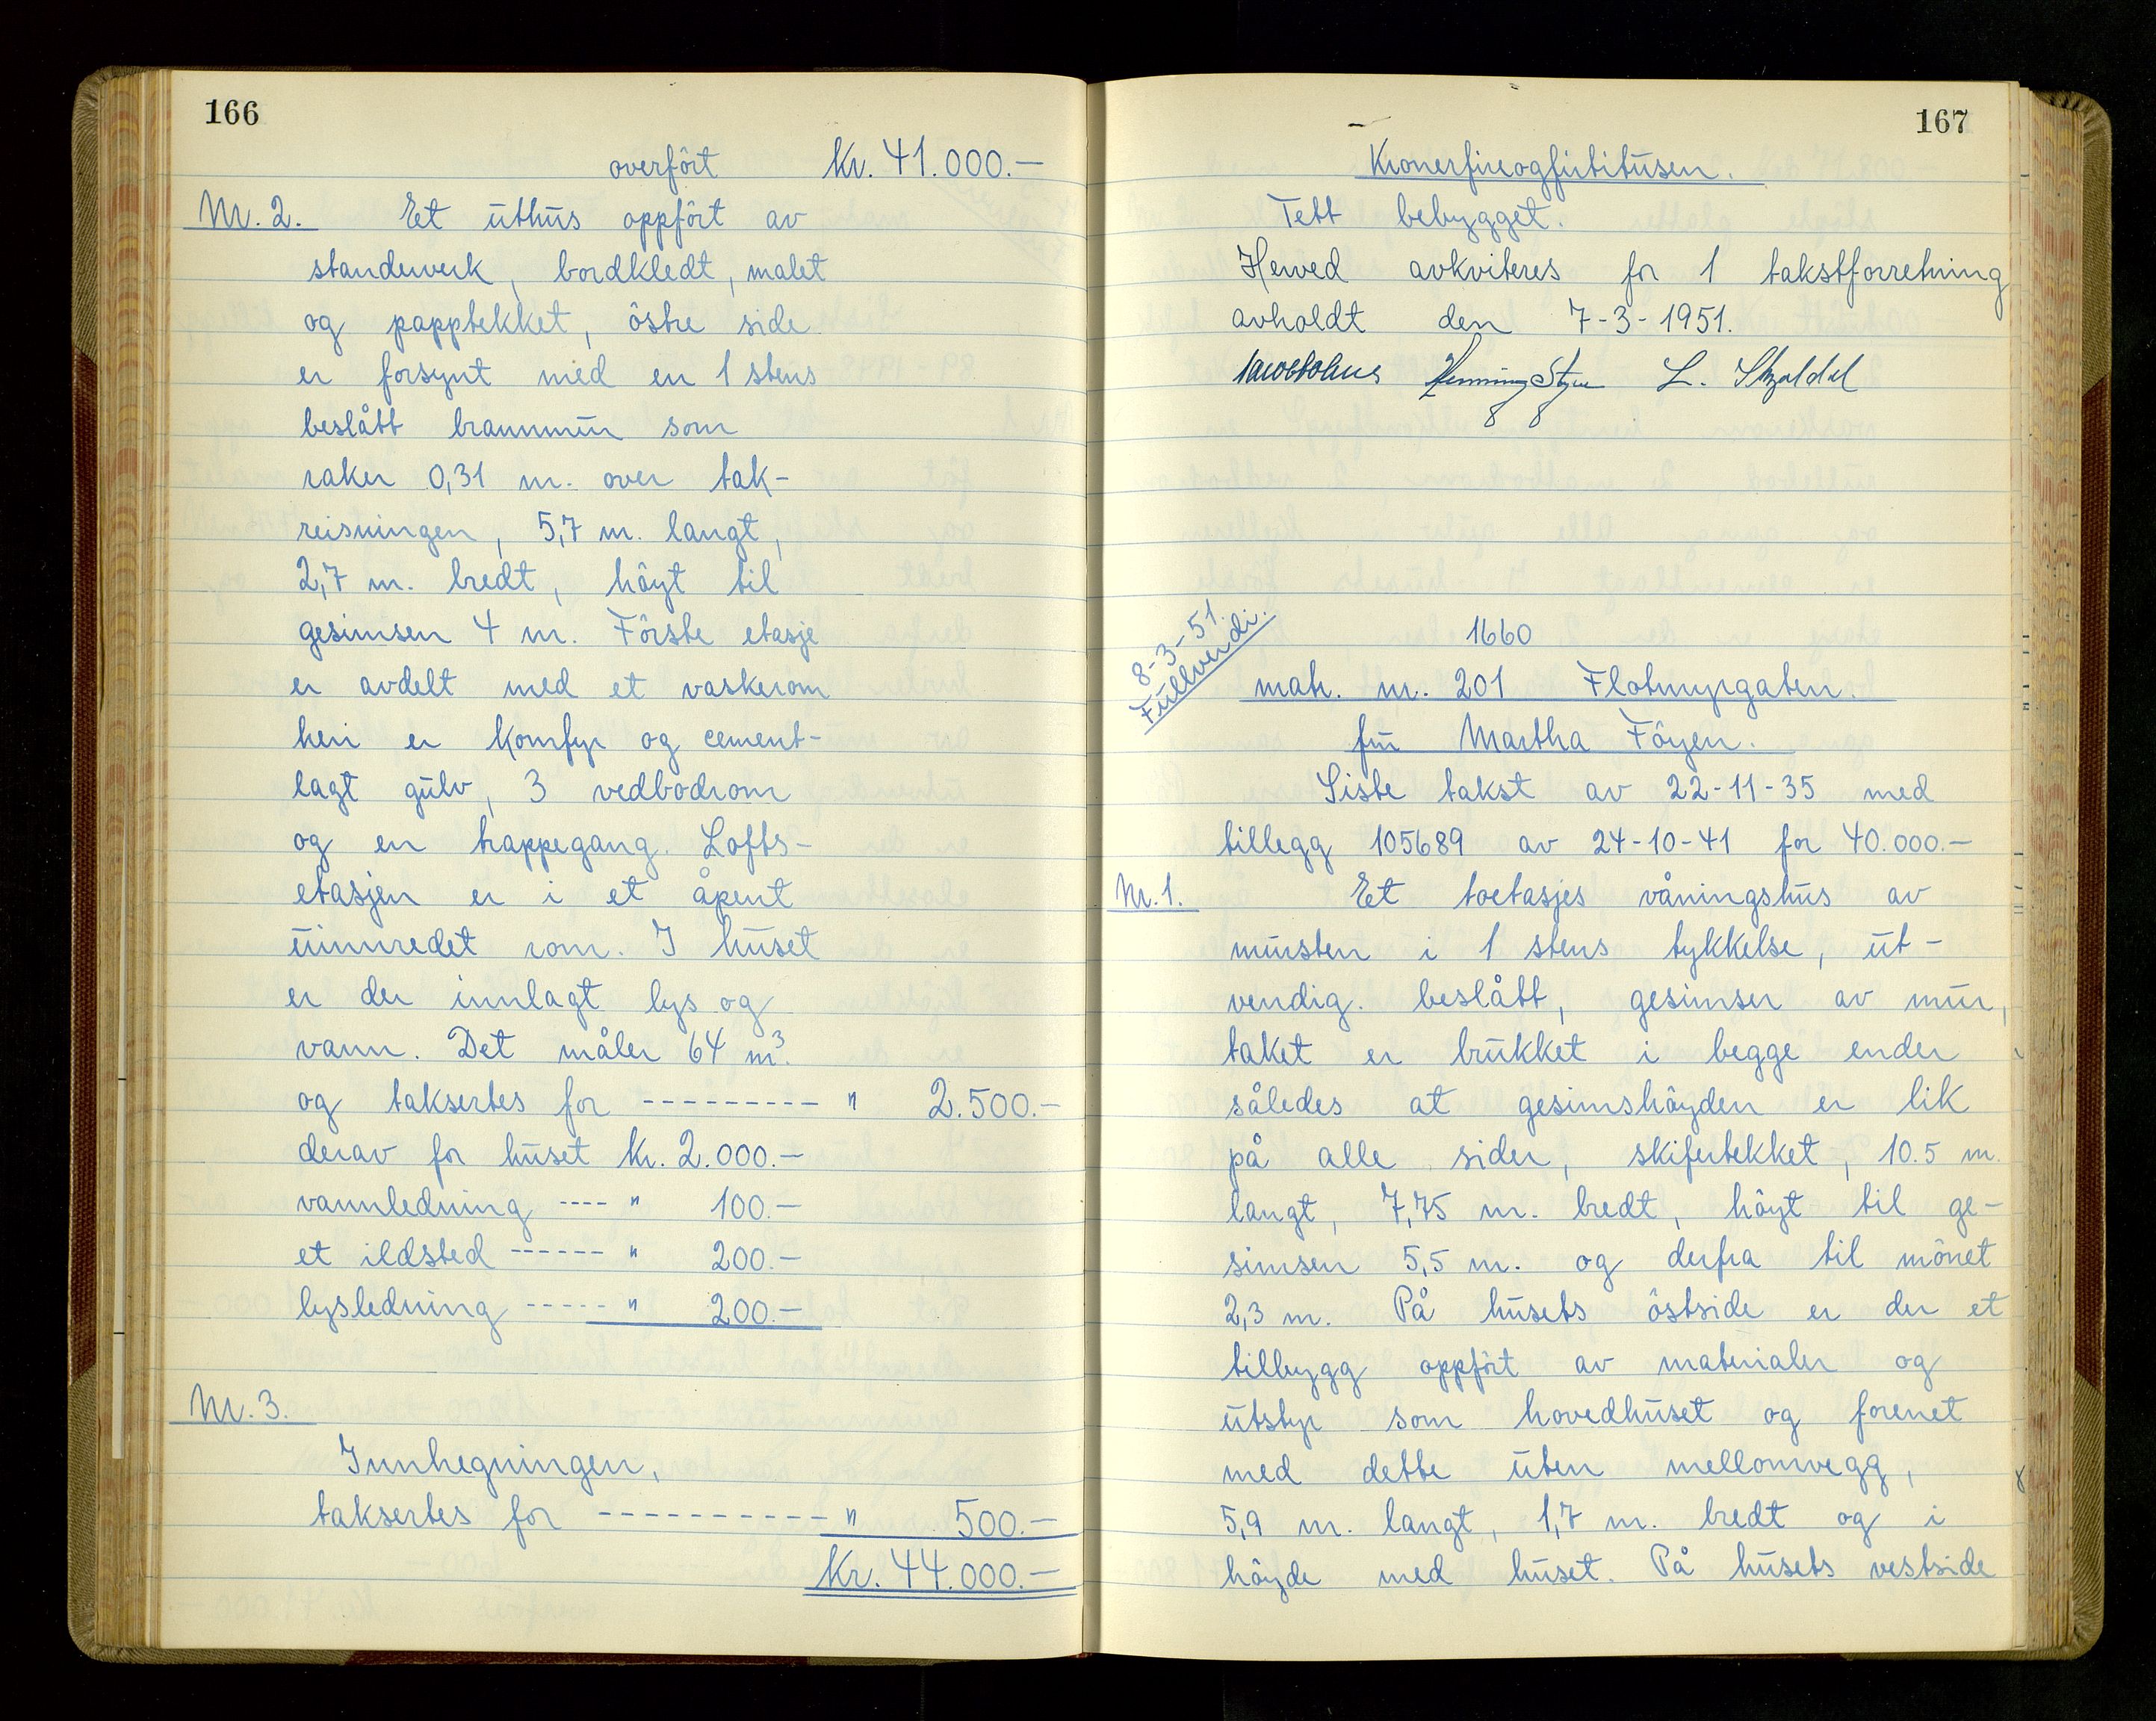 166
overfört Kr. 41.000.-
Nr. 2. Et uthus oppfört av
standerverk, bordkledt, malet
og papptekket, östre side
er forsynt med en 1 stens
beslått brannmur som
raker 0,31 m. over tak-
reisningen, 5,7 m. langt,
2,7 m. bredt, höyt til
gesimsen 4 m. Förste etasje
er avdelt med et vaskerom
heri er komfyr og cement-
lagt gulv, 3 vedbodrom
og en trappegang. Lofts-
etasjen er i et åpent
uinnredet rom. I huset
er der innlagt lys og
vann. Det måler 64 m³.
og taksertes for --------- " 2.500.-
derav for huset Kr. 2.000.-
vannledning ---- " 100.-
et ildsted ------ " 200.-
lysledning ----- " 200.-
Nr. 3.
Innhegningen,
taksertes for ----------- " 500.-
Kr. 44.000.-
167
Kronerfireogfirtitusen.
Tett bebygget.
Herved avkviteres for 1 takstforretning
avholdt den 7-3-1951.
Henning L.
8-3-51.
Fullverdi.
1660
matr. nr. 201 Flotmyrgaten.
fru Martha Föyen.
Siste takst av 22-11-35 med
tillegg 105689 av 24-10-41 for 40.000.-
Nr. 1. Et toetasjes våningshus av
mursten i 1 stens tykkelse, ut-
vendig beslått, gesimser av mur,
taket er brukket i begge ender
således at gesimshöyden er lik
på alle sider, skifertekket, 10.5 m.
langt, 7,75 m. bredt, höyt til ge-
simsen 5,5 m. og derfra til mönet
2,3 m. På husets östside er der et
tilbygg oppfört av materialer og
utstyr som hovedhuset og forenet
med dette uten mellomvegg,
5,9 m. langt, 1,7 m. bredt og i
höyde med huset. På husets vestside